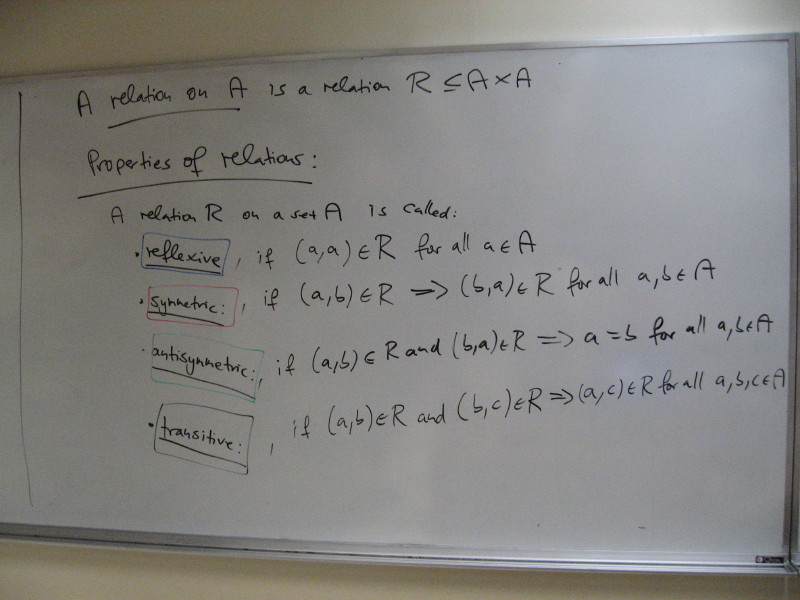 A relation on A is a relation R ⊆ A × A
Properties of relations:
A relation R on a set A is called:
• reflexive, if (a,a) ∈ R for all a ∈ A
• symmetric:, if (a,b) ∈ R ⟹ (b,a) ∈ R for all a,b ∈ A
• antisymmetric:, if (a,b) ∈ R and (b,a) ∈ R ⟹ a = b for all a,b ∈ A
• transitive:, if (a,b) ∈ R and (b,c) ∈ R ⟹ (a,c) ∈ R for all a,b,c ∈ A